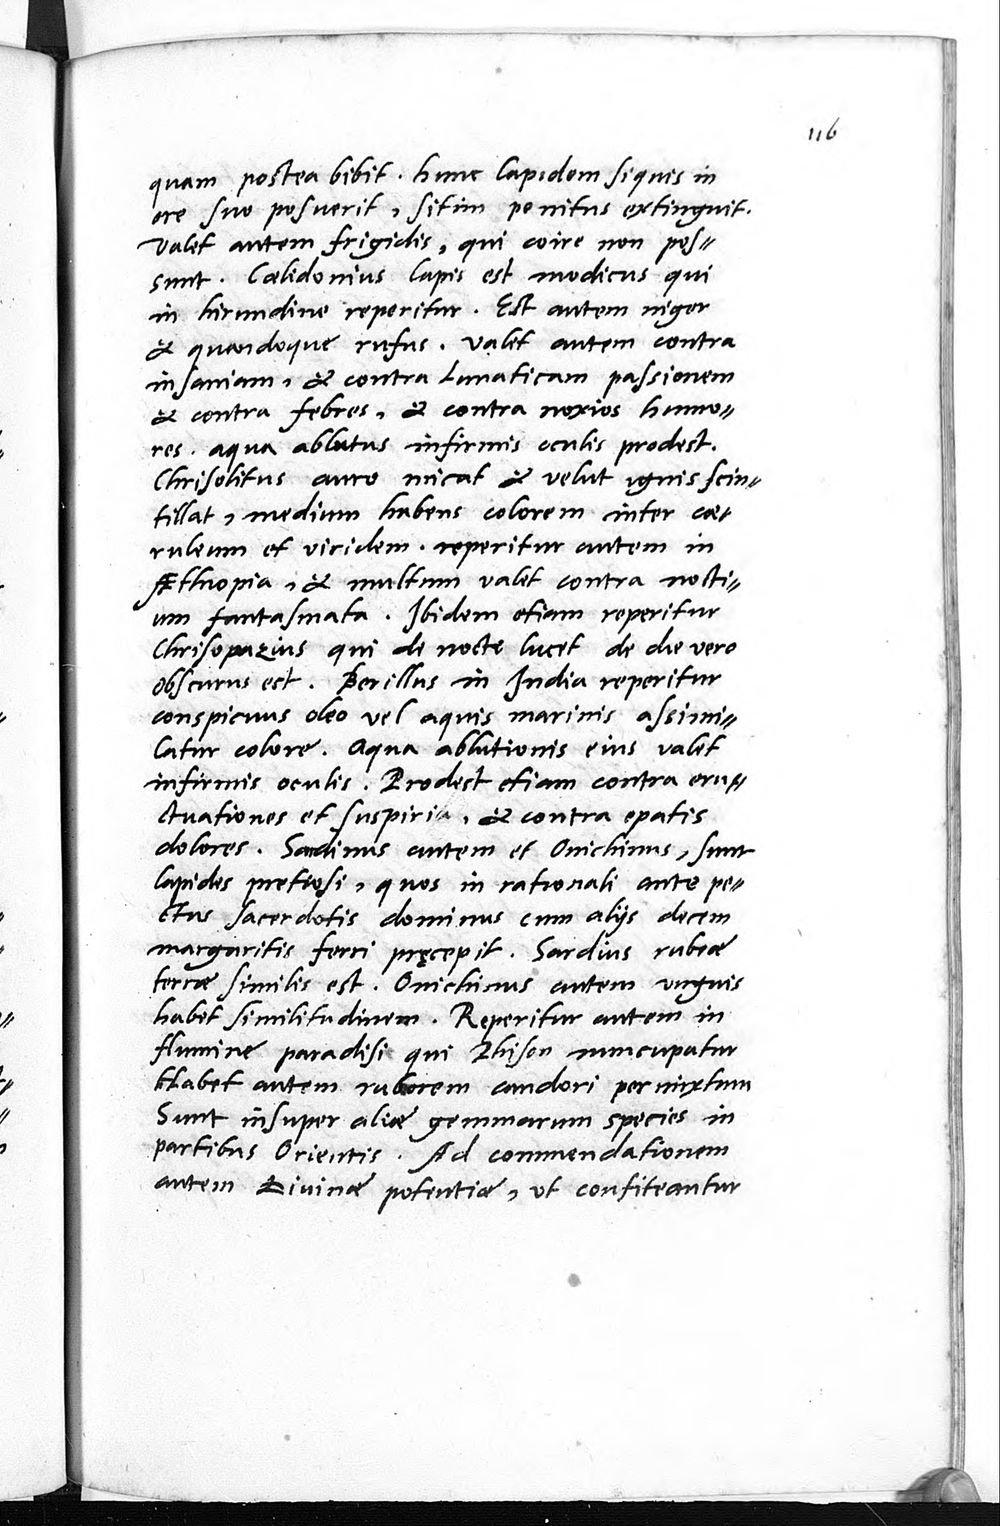 116
quam postea bibit. hunc lapidem siquis in
ore suo posuerit, sitim penitus extinguit.
Valet autem frigidis, qui coire non pos=
sunt. Cœlidonius lapis est modicus qui
in hirundine reperitur. Est autem niger
& quandoque rufus. Valet autem contra
insaniam, & contra Lunaticam passionem
& contra febres, & contra noxios humo=
res. aqua ablutus infirmis oculis prodest.
Chrisolitus auro micat & velut ignis scin=
tillat, medium habens colorem inter cœ=
ruleum et viridem. reperitur autem in
Æthiopia, & multum valet contra nocti=
um fantasmata. Ibidem etiam reperitur
Chrisopazius qui de nocte lucet de die vero
obscurus est. Berillus in India reperitur
conspicuus oleo vel aquis marinis assimi=
latur colore. Aqua ablutionis eius valet
infirmis oculis. Prodest etiam contra eru=
ctuationes et suspiria, & contra epatis
dolores. Sardinus autem et Onichinus, sunt
lapides pretiosi, quos in rationali ante pe=
ctus sacerdotis dominus cum alijs decem
margaritis ferri pręcepit. Sardius rubræ
terræ similis est. Onichinus autem unguis
habet similitudinem. Reperitur autem in
flumine paradisi qui Phison nuncupatur
Habet autem ruborem candori permixtum
Sunt insuper aliæ gemmarum species in
partibus Orientis. Ad commendationem
autem Diuinæ potentiæ, ut confiteantur